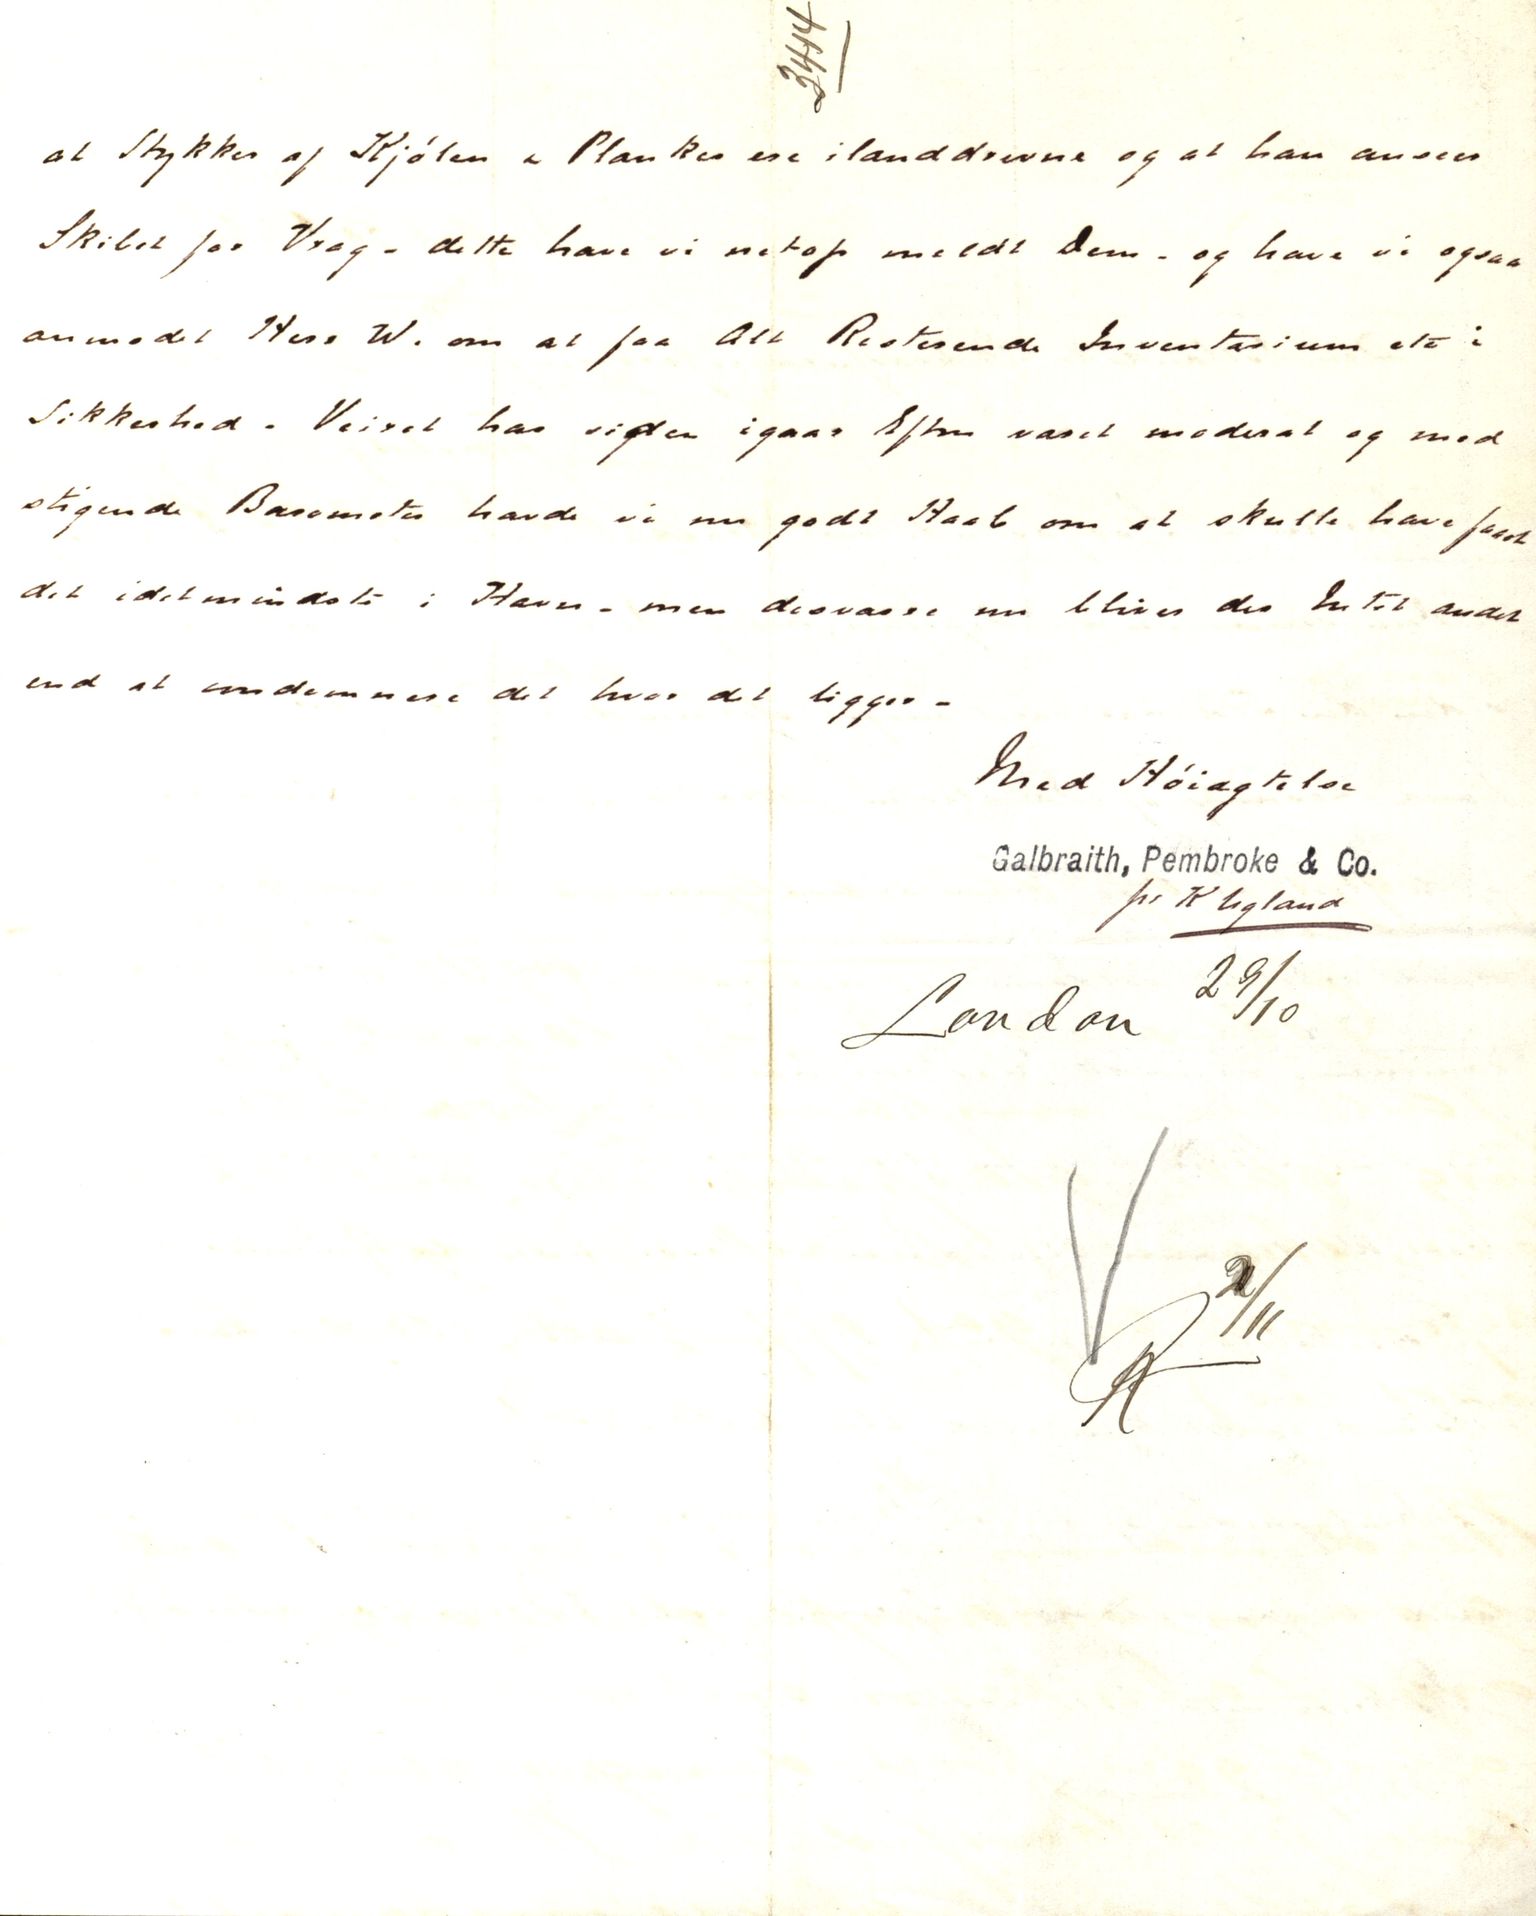 3444
at Stykker af Kjølen & Planker ere ilanddrevne og at han ansees
Skibet for Vrag - dette have vi netop meldt Dem - og have vi ogsaa
anmodet Herr W. om at faa Alt Resterende Inventarium etc i
Sikkerhed - Veiret har siden igaar Eftm varet moderat og med
stigende Barometer havde vi nu godt Haab om at skulle have faaet
det idetmindste i Havn - men desvarre nu bliver der Intet andet
end at condemnere det hvor det ligger -
Med Høiagtelse
Galbraith, Pembroke & Co.
pr K Ugland
London 29/10
2/11